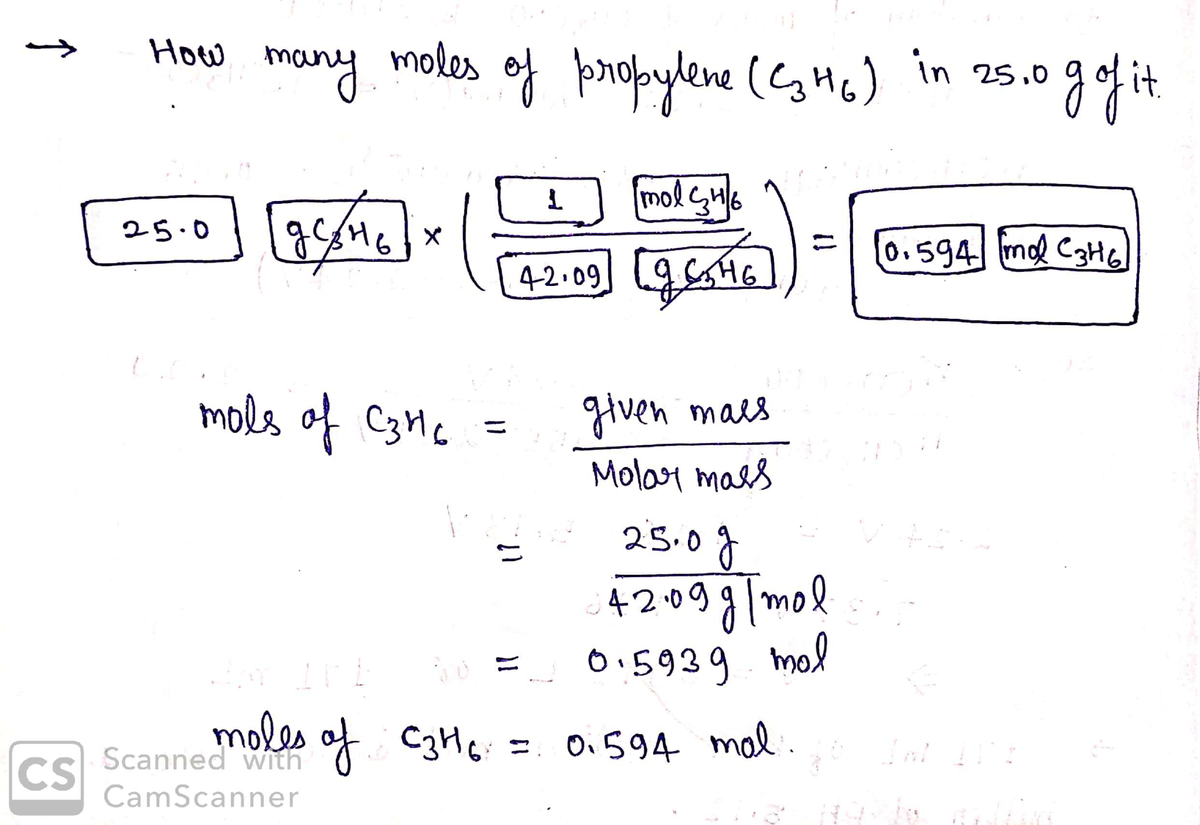 → How many moles of propylene (C3H6) in 25.0 g of it.
25.0 g C3H6 × ( 1 mol C3H6 / 42.09 g C3H6 ) = 0.594 mol C3H6
mols of C3H6 = given mass / Molar mass
= 25.0 g / 42.09 g/mol
= 0.5939 mol
moles of C3H6 = 0.594 mol.
CS Scanned with
CamScanner